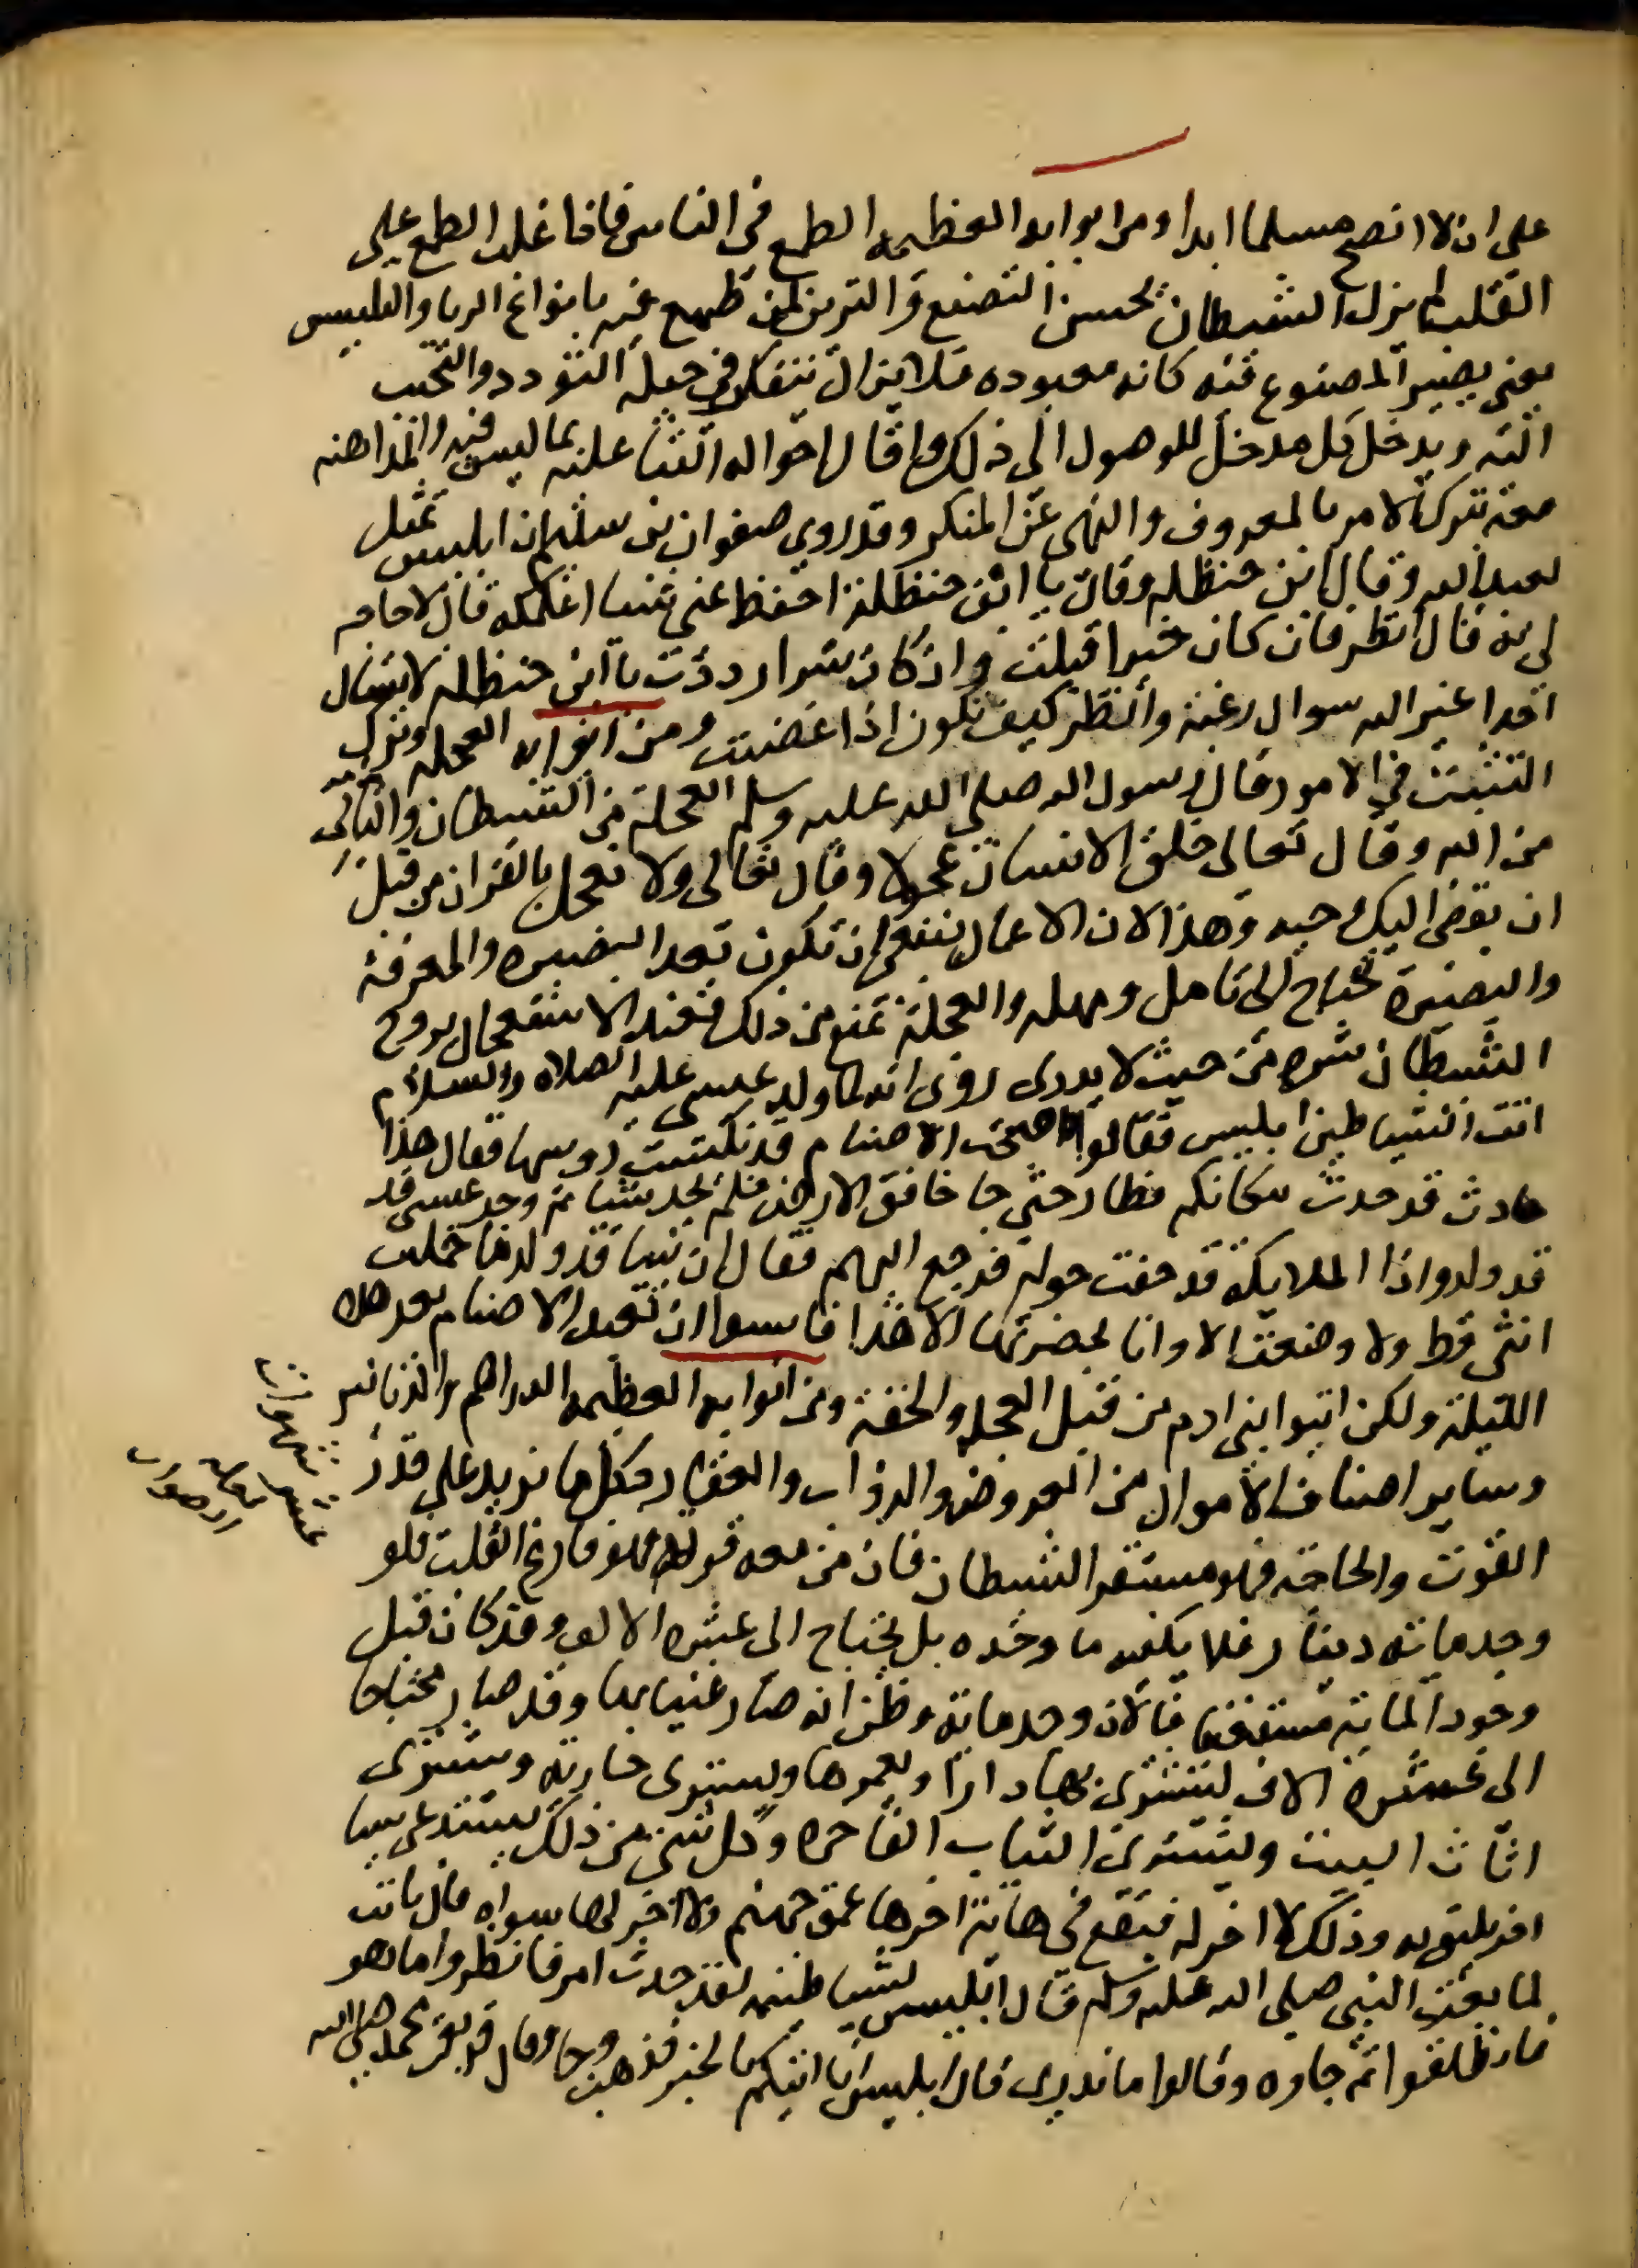 على ان لا انصح مسلما ابدا ومن ابوابه العظيمه الطمع في الناس فاذا غلب الطمع على
القلب لم يزل الشيطان يحسن التصنع والتزين لمن طمع فيه بانواع الريا والتلبيس
يعني يصير المصنوع فيه كانه معبوده فلا يزال يتفكر في حيلة التودد والتحبب
اليه ويدخل كل مدخل للوصول الى ذلك واقل احواله الثنا عليه بما ليس فيه والمداهنه
معه بترك الامر بالمعروف والنهى عن المنكر وقد روي صفوان بن سليم ان ابليس تمثل
لعبد الله وقال ابن حنظله وقال يا ابن حنظلة احفظ عني شيا اعلمكه قال لا حاجه
لي به قال انظر فان كان خيرا قبلت وان كان شرا رددت يا ابن حنظله لا تسال
احدا غير الله سوال رغبة وانظر كيف تكون اذا غضبت ومن ابوابه العجله وترك
التثبت في الامور قال رسول الله صلى الله عليه وسلم العجلة من الشيطان والتاني
من الله وقال تعالى خلق الانسان عجولا وقال تعالى ولا تعجل بالقران من قبل
ان يقضى اليك وحيه وهذا لان الاعمال ينبغي ان تكون بعد البصيره والمعرفة
والبصيرة تحتاج الى تامل ومهله والعجلة تمنع من ذلك فعند الاستعجال يروج
الشيطان شره من حيث لا يدرى روى انه لما ولد عيسى عليه الصلاه والسلام
اتت الشياطين ابليس فقالوا اصبحت الاصنام قد نكست روسها فقال هذا
حادث قد حدث مكانكم فطار حتى جا خافق الارض فلم يجد شيا ثم وجد عيسى قد
قد ولد واذا الملايكة قد حفت حوله فرجع اليهم فقال ان نبيا قد ولد ما حملت
انثى قط ولا وضعت الا وانا بحضرتها الا هذا فايسوا ان تعبد الاصنام بعد هذه
الليلة ولكن ايتوا بني ادم من قبل العجله والخفة ومن ابوابه العظيمه الدراهم والدنانير
وساير اصناف الاموال من العروض والدواب والعقار وكل ما يزيد على قدر
القوت والحاجة فهو مستقر الشيطان فان من معه قوته فهو فارغ القلب فلو
وجد ماية دينار فلا يكفيه ما وجده بل يحتاج الى عشرة الالف وقد كان قبل
وجود الماية مستغنيا فالان وجد ماية وظن انه صار غنيا بها وقد صار محتاجا
الى عشرة الاف ليشترى بها دارا ويعمرها ويشترى جارية ويشترى
اثاث البيت ويشترى الثياب الفاخره وكل شي من ذلك يستدعى شيا
اخر يليق به وذلك لا اخر له فيقع في هاية اخرها عمق جهنم ولا اخر لها سواه قال ثابت
لما بعث النبي صلى الله عليه وسلم قال ابليس لشياطينه لقد حدث امر فانظروا ما هو
فانطلقوا ثم جاوه وقالوا ما ندري قال ابليس انا اتيكم بالخبر فذهب وجا وقال قد بعث محمد صلى الله
عشر شهوات